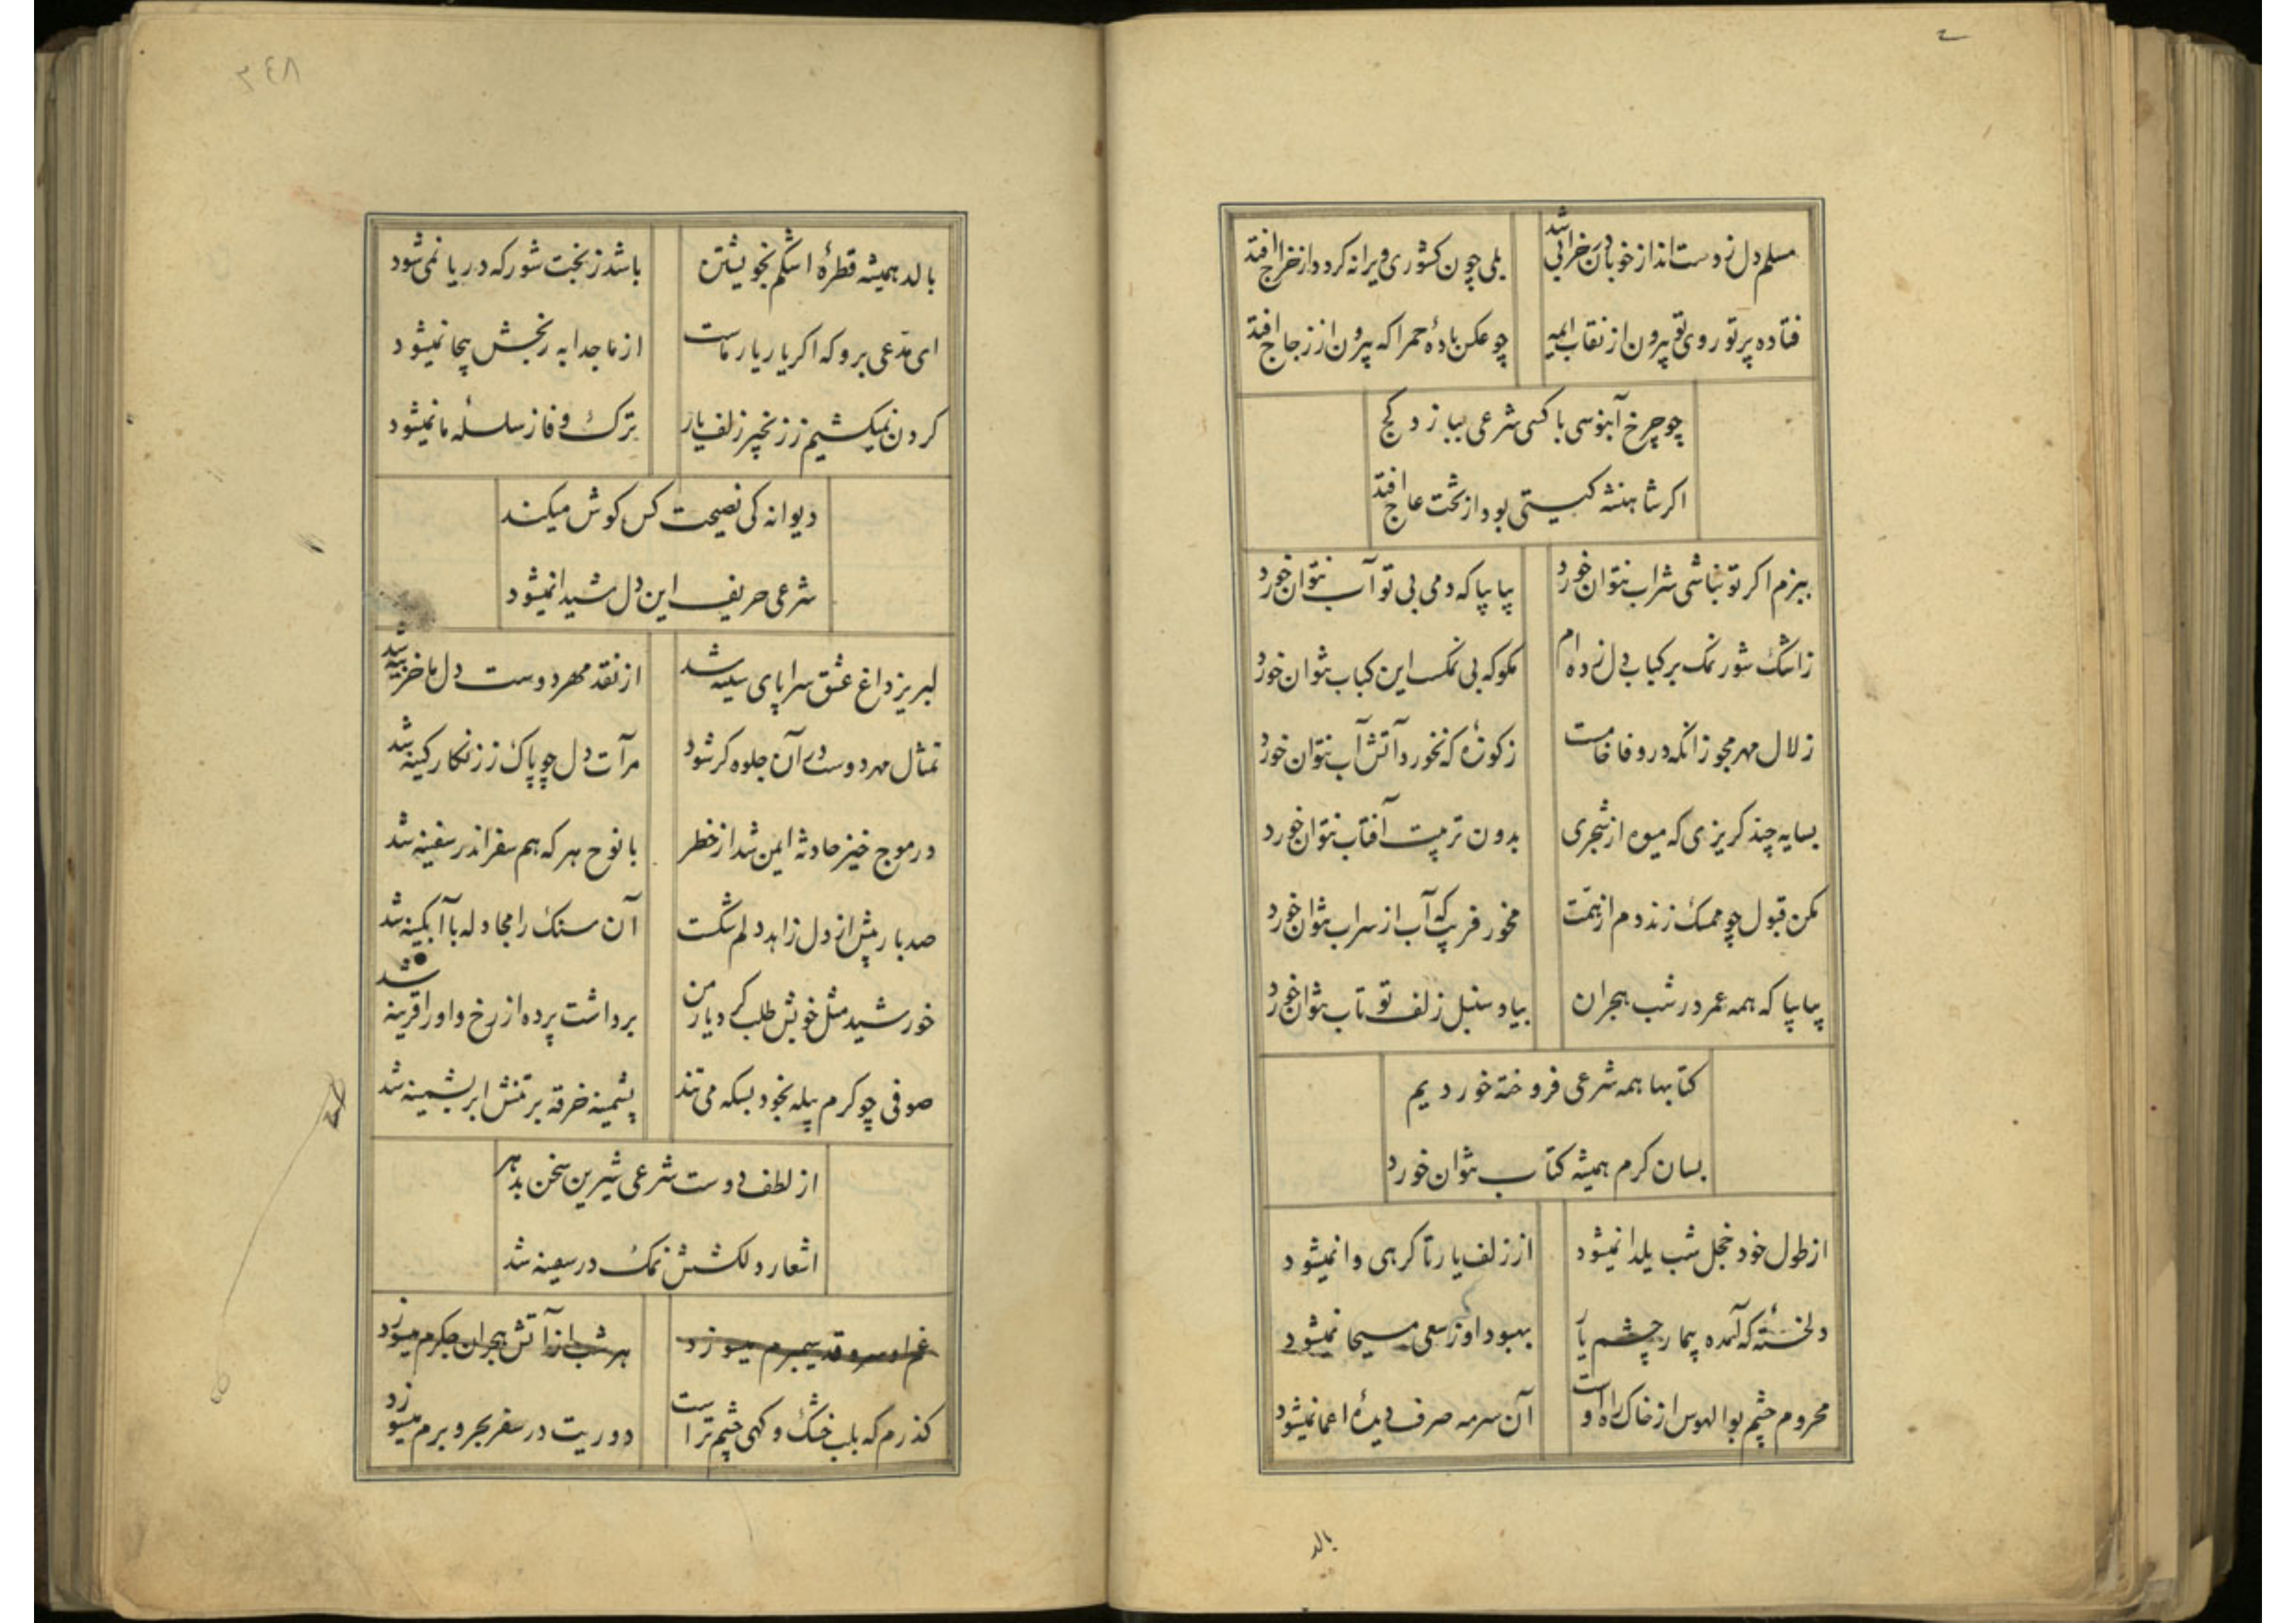 مسلم دل ز دست انداز خوبان خرابی شد
بلی چون کشوری ویرانه کردد از خراج افتد
فتاده پرتو روی تو بیرون از نقاب
چو عکس بادهٔ حمرا که بیرون از زجاج افتد
چو چرخ آبنوسی با کسی شرعی ببازد کج
اکر شاهنشه کیتی بود از تخت عاج افتد
ببزم اکر تو نباشی شراب نتوان خورد
بیا بیا که دمی بی تو آب نتوان خورد
ز اشک شور نمک بر کباب دل زده ام
مکو که بی نمک این کباب نتوان خورد
زلال مهر مجو زانکه در وفا خامست
ز کوزهٔ که نخورد آتش آب نتوان خورد
بسایه چند کریزی که میوه از شجری
بدون تربیت آفتاب نتوان خورد
مکن قبول چو ممسک زند دم از همت
مخور فریب که آب از سراب نتوان خورد
بیا بیا که همه عمر در شب هجران
بیاد سنبل زلف تو تاب نتوان خورد
کتابها همه شرعی فروخته خوردیم
بسان کرم همیشه کتاب نتوان خورد
از طول خود خجل شب یلدا نمیشود
از زلف یار تا کرهی وا نمیشود
دلخستهٔ که آمده بیمار چشم یار
بهبود او ز سعی مسیحا نمیشود
محروم چشم بوالهوس از خاک راه اوست
آن سرمه صرف دیدهٔ اعما نمیشود
بالد
۳۴۸
بالد همیشه قطرهٔ اشکم بخویشتن
باشد ز بخت شور که دریا نمی شود
ای مدعی برو که اکر یار یار ماست
از ما جدا به رنجش بیجا نمیشود
کردن نمیکشیم ز زنجیر زلف یار
ترک وفا ز سلسله ما نمیشود
دیوانه کی نصیحت کس کوش میکند
شرعی حریف این دل شیدا نمیشود
لبریز داغ عشق سراپای سینه شد
از نقد مهر دوست دل ما خزینه شد
تمثال مهر دوست در آن جلوه کر شود
مرآت دل چو پاک ز زنکار کینه شد
در موج خیز حادثه ایمن شد از خطر
با نوح هر که هم سفر اندر سفینه شد
صد بار بیش از دل زاهد دلم شکست
آن سنک را مجادله با آبکینه شد
خورشید مثل خویش طلب کرد یار من
برداشت پرده از رخ و او را قرینه شد
صوفی چو کرم پیله بخود بسکه می تند
پشمینه خرقه بر تنش ابریشمینه شد
از لطف دوست شرعی شیرین سخن بدهر
اشعار دلکشش نمک در سفینه شد
غم او سرو قد سیمبرم میسوزد
هر شب از آتش هجران جکرم میسوزد
کذرم که بلب خشک و کهی چشم تر است
دوریت در سفر بحر و برم میسوزد